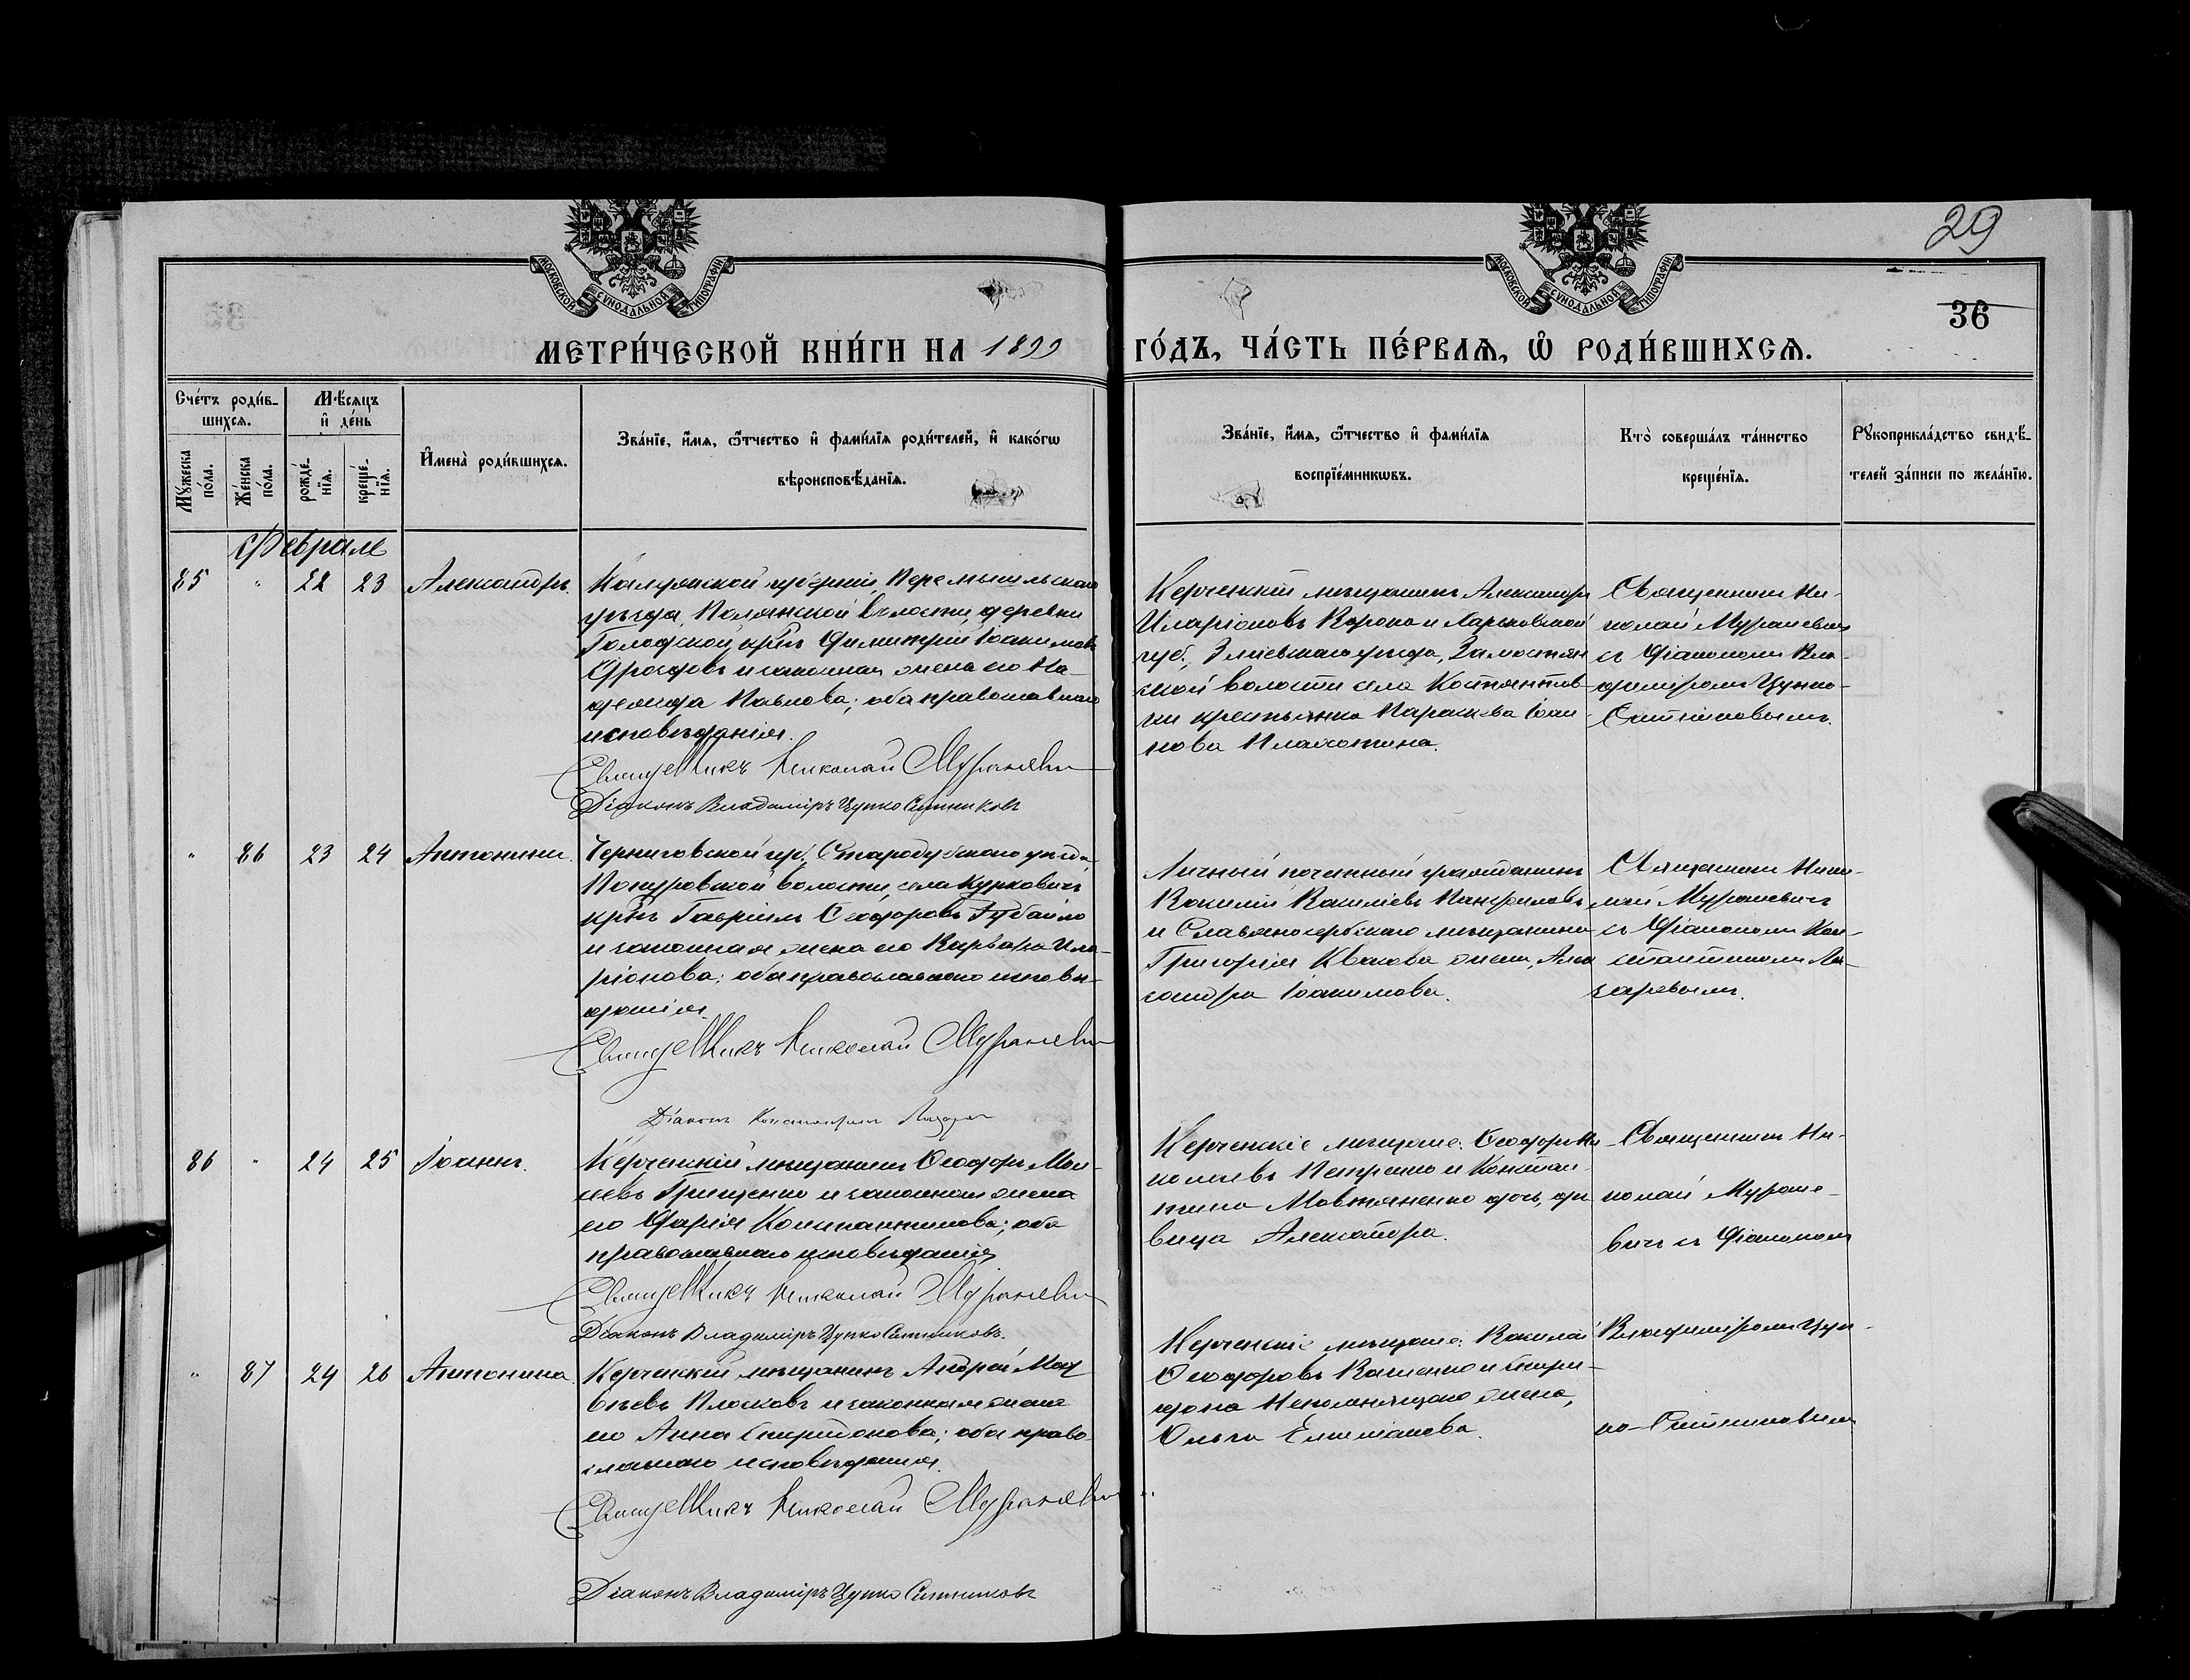 29
36
МОСКОВСКОЙ СѴНОДАЛЬНОЙ ТИПОГРАФІИ
МОСКОВСКОЙ СѴНОДАЛЬНОЙ ТИПОГРАФІИ
МЕТРИ́ЧЕСКОЙ КНИ́ГИ НА 1899 ГО́ДЪ, ЧА́СТЬ ПЕ́РВАЯ, Ѡ҆ РОДИ́ВШИХСЯ.
Сче́тъ роди́в-
шихся.
Му́жеска по́ла.
Же́нска по́ла.
Мѣ́сяцъ
и҆ де́нь
рожде́-
нїѧ.
креще́-
нїѧ.
И҆мена̀ роди́вшихся.
Зва́нїе, и҆́мя, ѻ҆́тчество и҆ фами́лїя роди́телей, и҆ како́гѡ
вѣроисповѣ́данїя.
Зва́нїе, и҆́мя, ѻ҆́тчество и҆ фами́лїя
воспрїе́мникѡвъ.
Кто̀ соверша́лъ та́инство
креще́нїя.
Рꙋкоприкла́дство свидѣ́-
телей за́писи по жела́нїю.
Февраль
85 " 22 23 Александръ.
Калужской губерніи, Перемышльскаго
уѣзда, Полянской волости, деревни
крнъ Димитрій Іоакимовъ
и законная жена его На-
дежда Павлова; оба православнаго
исповѣданія.
Священникъ Николай Мураневичъ
Діаконъ Владиміръ Цупко Ситниковъ
Керченскій мѣщанинъ Александръ
Иларіоновъ Короно и Харьковской
губ., Зміевскаго уѣзда, Замостян-
ской волости села Костянтов-
ки крестьянка Параскева Іоан-
нова
Священникъ Ни-
колай Мураневичъ
съ діакономъ Вла-
диміромъ Цупко-
Ситниковымъ.
" 86 23 24 Антонина.
Черниговской губ., Стародубскаго уѣзда
Понуровской волости, села Курковичъ
крнъ Гавріилъ Ѳеодоровъ
и законная жена его Варвара Ила-
ріонова; оба православнаго исповѣ-
данія.
Священникъ Николай Мураневичъ
Діаконъ Константинъ Лазаревъ
Личный почетный гражданинъ
Василій Василіевъ Панфиловъ
и Славяносербскаго мѣщанина
Григорія Квасова жена, Алек-
сандра Іоакимова.
Священникъ Нико-
лай Мураневичъ
съ діакономъ Кон-
стантиномъ Ла-
заревымъ.
86 " 24 25 Іоаннъ.
Керченскій мѣщанинъ Ѳеодоръ Мои-
сеевъ Грищенко и законная жена
его Дарія Константинова; оба
православнаго исповѣданія
Священникъ Николай Мураневичъ
Діаконъ Владиміръ Цупко Ситниковъ.
Керченскіе мѣщане: Ѳеодоръ Ни-
колаевъ Петренко и Констан-
тина Мовтяненко дочь, дѣ-
вица Александра.
Священникъ Ни-
колай Муране-
вичъ съ діакономъ
" 87 24 26 Антонина.
Керченскій мѣщанинъ Андрей Мат-
вѣевъ Плосковъ и законная жена
его Анна Спиридонова; оба право-
славнаго исповѣданія.
Священникъ Николай Мураневичъ
Діаконъ Владиміръ Цупко Ситниковъ
Керченскіе мѣщане: Василій
Ѳеодоровъ Ващенко и Спири-
дона Непомнящаго жена,
Ольга
Владиміромъ Цуп-
ко-Ситниковымъ